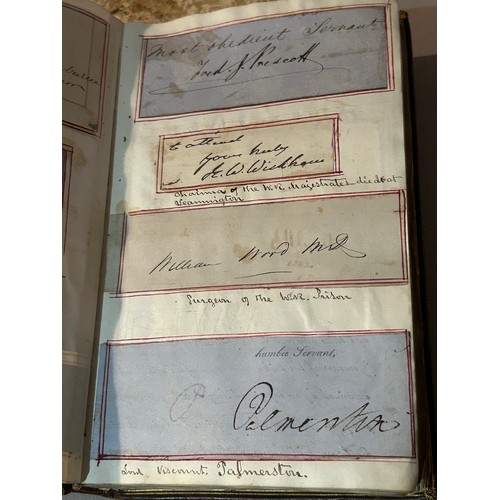 most obedient Servant
Fred J Prescott
to attend
yours truly
H. W. Wickham
Chairman of the W.R. Magistrates died at
Leamington
William Wood M.D
Surgeon of the W.R. Prison
humble Servant,
Palmerston
2nd Viscount. Palmerston.